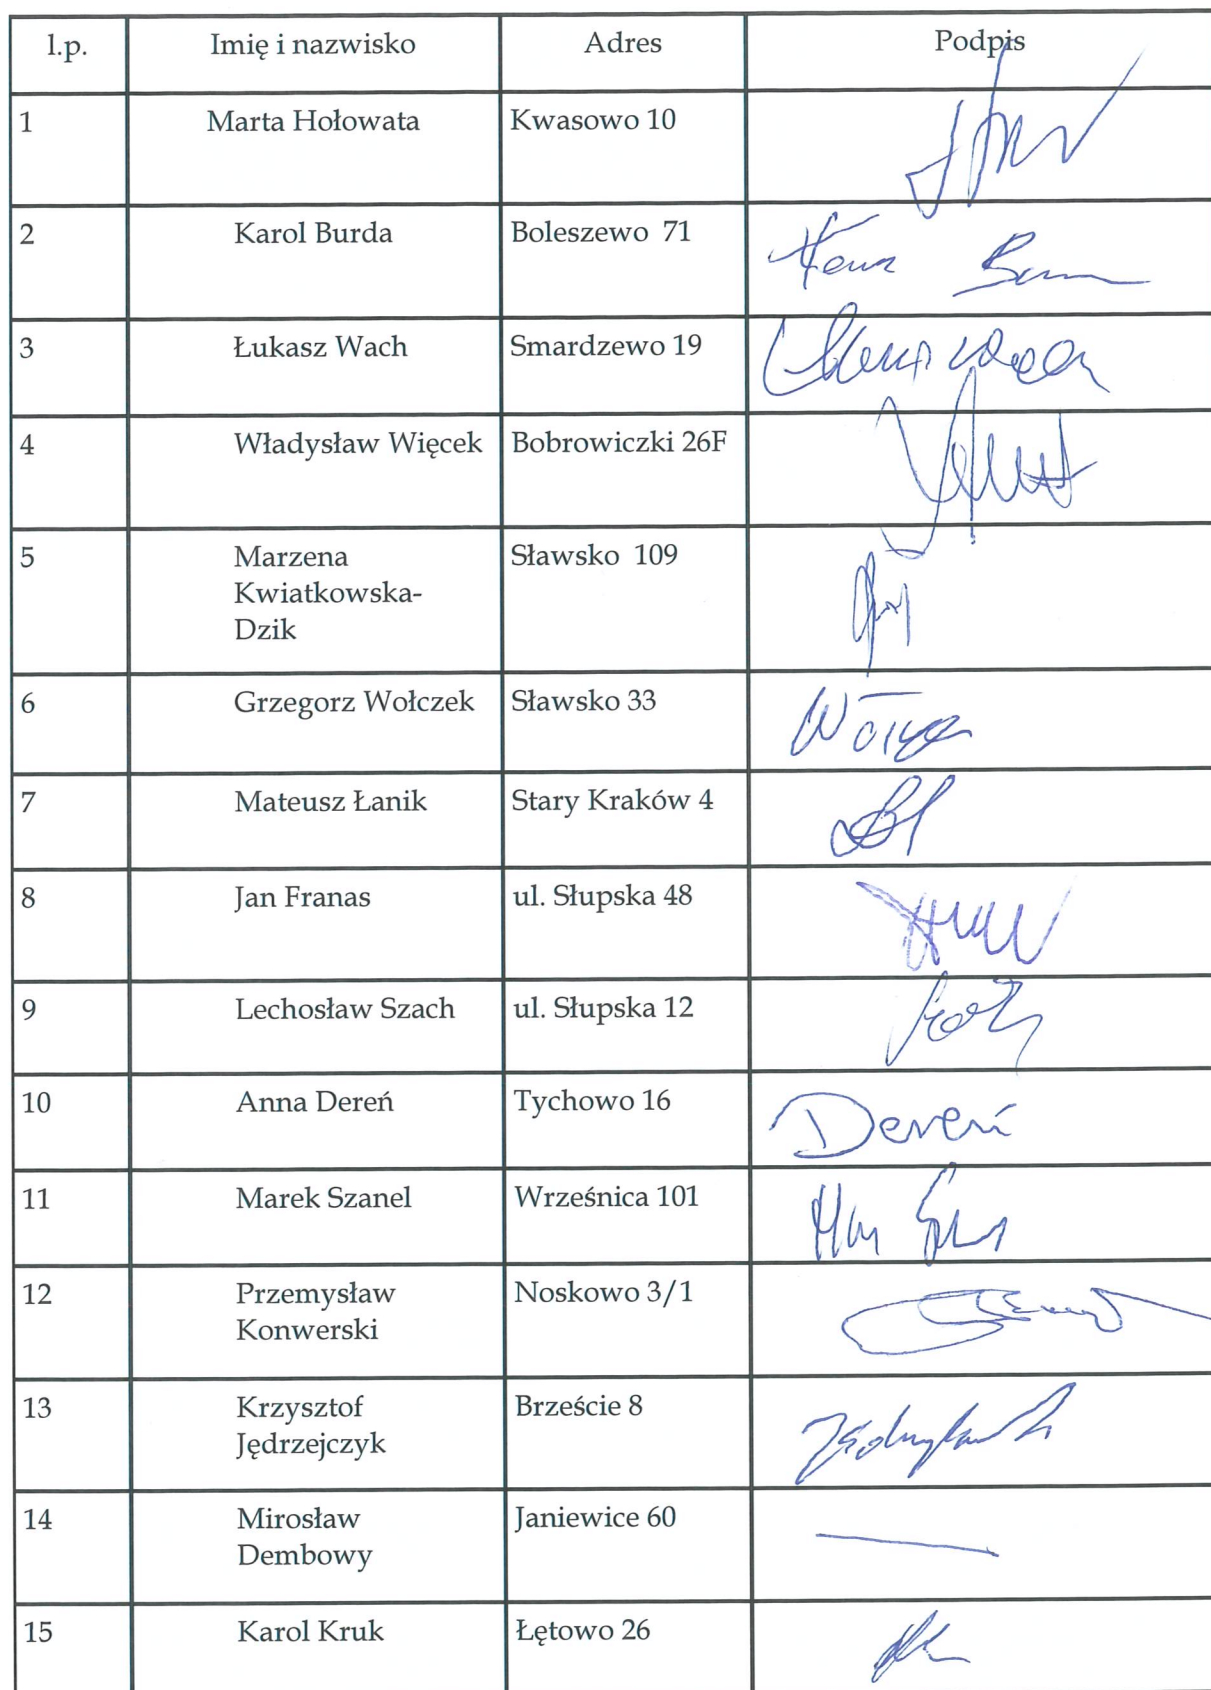 l.p. Imię i nazwisko Adres Podpis
1 Marta Hołowata Kwasowo 10
2 Karol Burda Boleszewo 71
3 Łukasz Wach Smardzewo 19
4 Władysław Więcek Bobrowiczki 26F
5 Marzena Sławsko 109
Kwiatkowska-
Dzik
6 Grzegorz Wołczek Sławsko 33
7 Mateusz Łanik Stary Kraków 4
8 Jan Franas ul. Słupska 48
9 Lechosław Szach ul. Słupska 12
10 Anna Dereń Tychowo 16 Dereń
11 Marek Szanel Wrześnica 101
12 Przemysław Noskowo 3/1
Konwerski
13 Krzysztof Brzeście 8
Jędrzejczyk
14 Mirosław Janiewice 60
Dembowy
15 Karol Kruk Łętowo 26